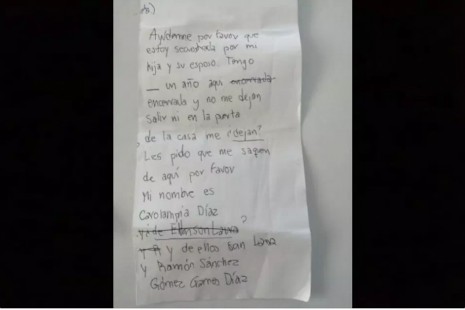 Ayúdenme por favor que
estoy secuestrada por mi
hija y su esposo. Tengo
un año aqui encerrada
encerrada y no me dejan
salir ni en la puerta
de la casa me ¿dejan?
Les pido que me saquen
de aquí por favor
Mi nombre es
Carolampia Díaz
y de ellos son
y Ramón Sánchez
Gómez Díaz